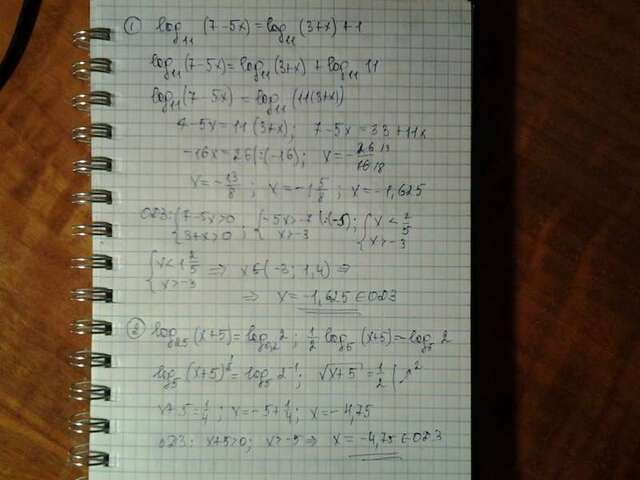 ① log₁₁ (7-5x) = log₁₁ (3+x) + 1
log₁₁ (7-5x) = log₁₁ (3+x) + log₁₁ 11
log₁₁ (7-5x) = log₁₁ (11(3+x))
7-5x = 11(3+x); 7-5x = 33+11x
-16x = 26 |:(-16); x = -26/16 13/8
x = -13/8; x = -1 5/8; x = -1,625
ОДЗ: {7-5x>0 3+x>0; {-5x>-7 |:(-5) x>-3; {x<7/5 x>-3
{x<1 2/5 x>-3 ⇒ x∈(-3; 1,4) ⇒
⇒ x = -1,625 ∈ ОДЗ
② log₂₅ (x+5) = log₀,₂ 2; 1/2 log₅ (x+5) = -log₅ 2
log₅ (x+5)^1/2 = log₅ 2⁻¹; √x+5 = 1/2 |↗²
x+5 = 1/4; x = -5+1/4; x = -4,75
ОДЗ: x+5>0; x>-5 ⇒ x = -4,75 ∈ ОДЗ